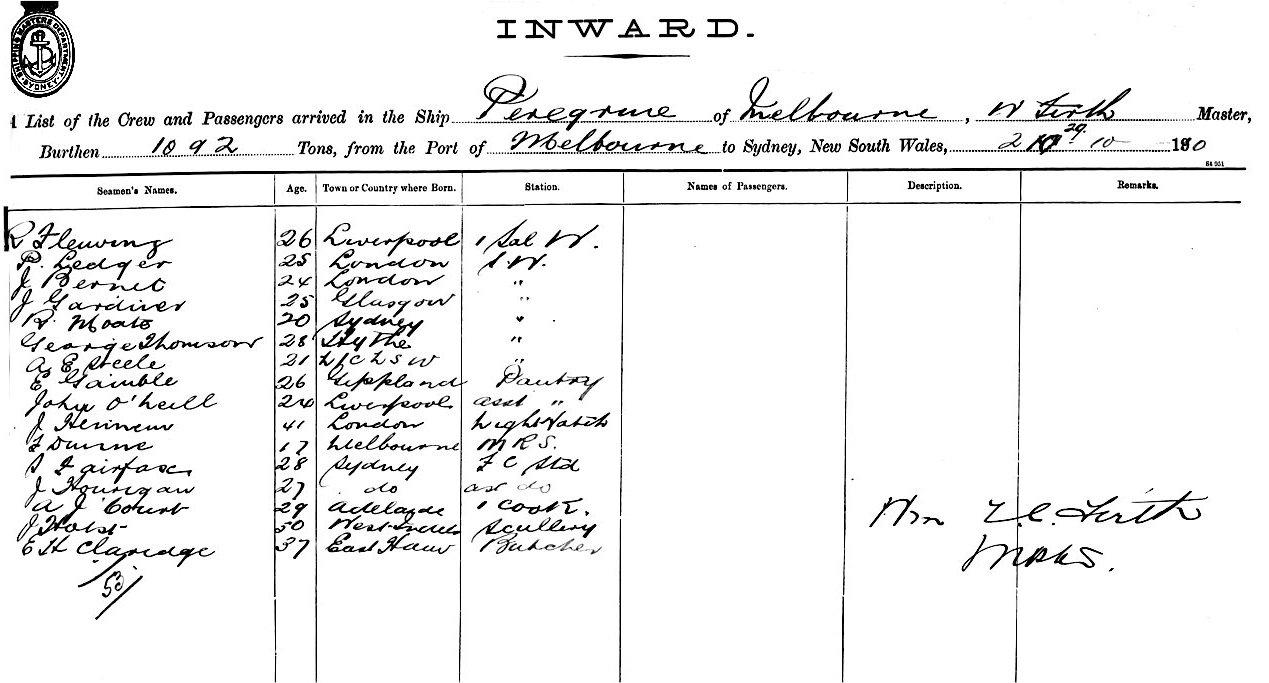 SHIPPING MASTERS DEPARTMENT SYDNEY
INWARD.
A List of the Crew and Passengers arrived in the Ship Peregrine of Melbourne, W Firth Master,
Burthen 1092 Tons, from the Port of Melbourne to Sydney, New South Wales, 29 10 1890
Seamen's Names. Age. Town or Country where Born. Station. Names of Passengers. Description. Remarks.
R Fleming 26 Liverpool 1 Sal W.
P. Ledger 25 London S.W.
J Bernet 24 London "
J Gardiner 25 Glasgow "
R. Moats 20 Sydney "
George Thomson 28 Hythe "
A E Steele 21 "
E Gamble 26 Gippland Pantry
John O'Neill 24 Liverpool asst "
J 41 London
F Dunne 17 Melbourne M R S.
S Fairfax 28 Sydney F C Std
J Hourigan 27 do ast do
A J Court 29 Adelaide 1 Cook.
J Holst 50 West Indies Scullery
E H Claridge 37 East Ham Butcher
53
Wm Firth